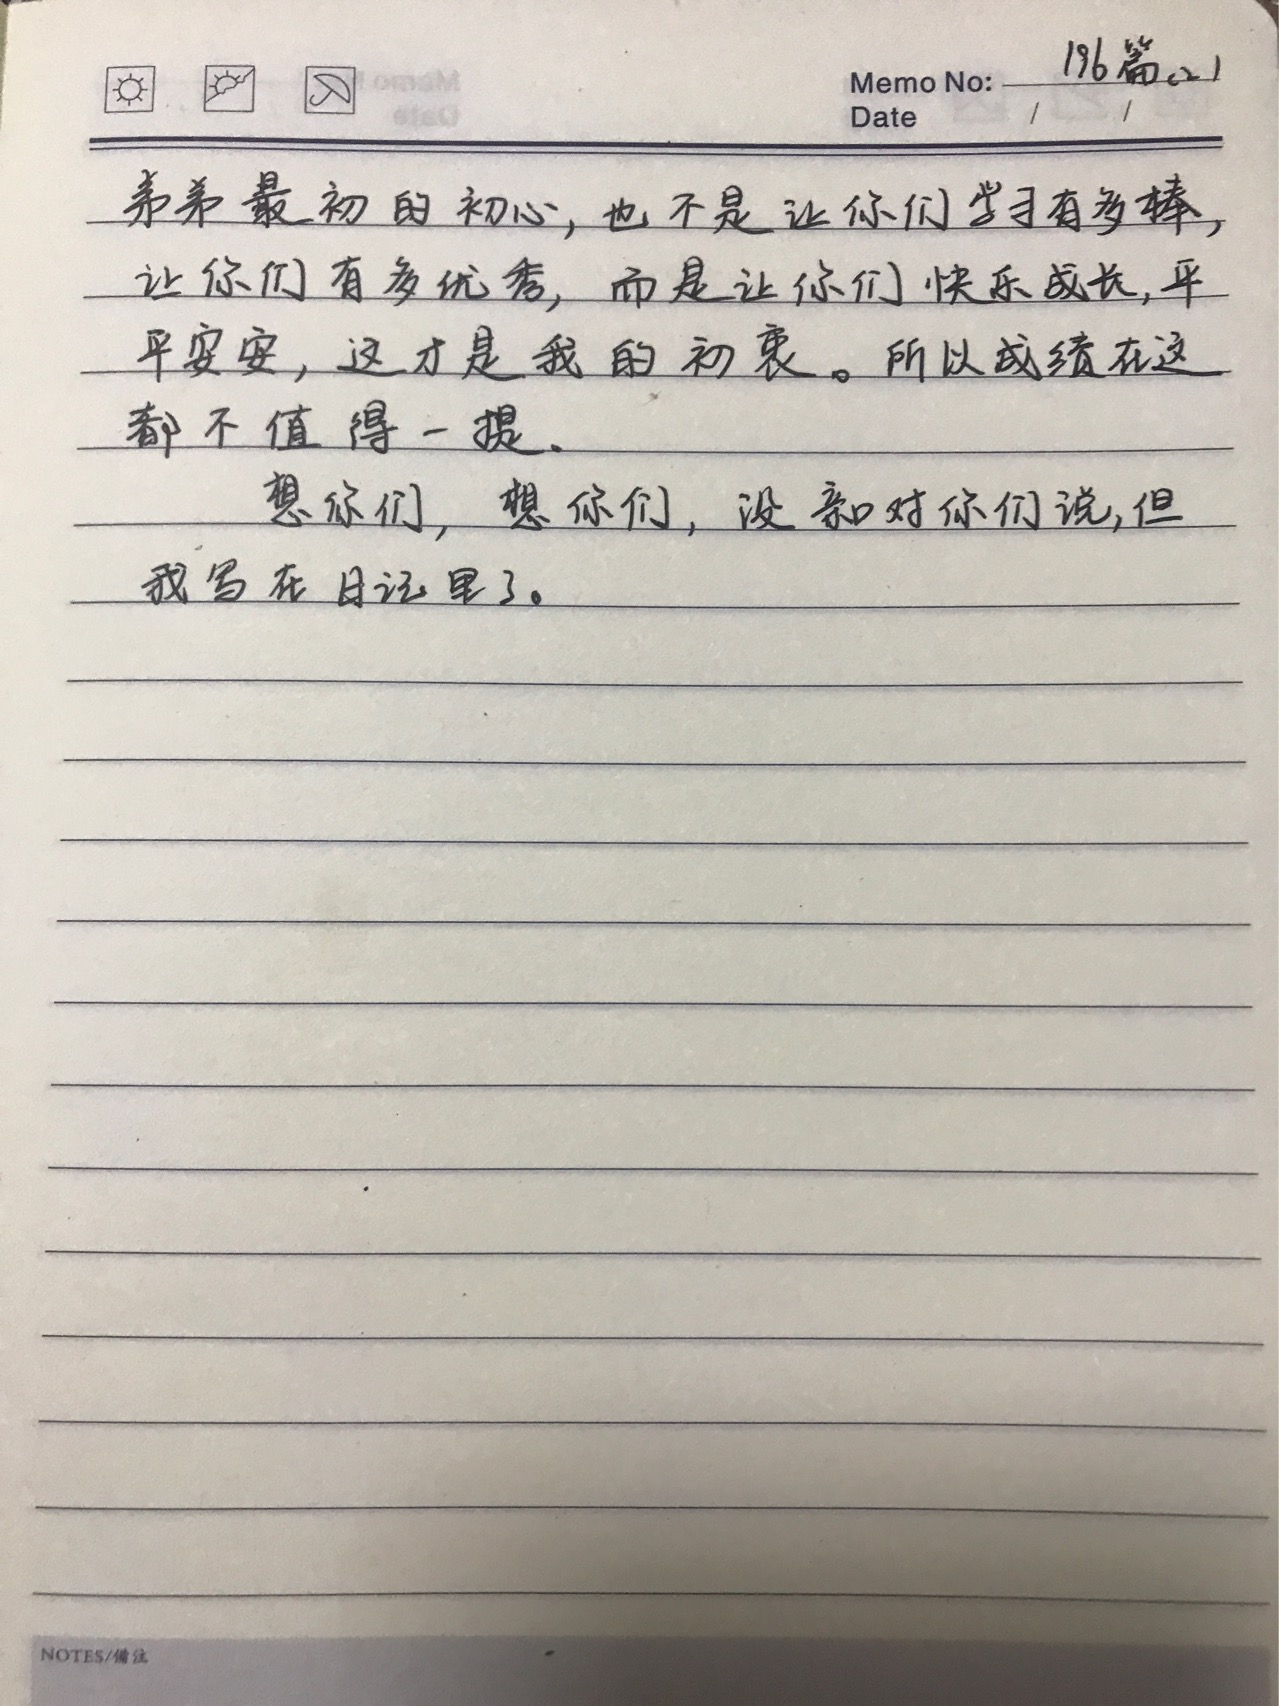 Memo No: 196篇(2)
Date / /
弟弟最初的初心,也不是让你们学习有多棒,
让你们有多优秀,而是让你们快乐成长,平
平安安,这才是我的初衷。所以成绩在这
都不值得一提.
想你们,想你们,没亲口对你们说,但
我写在日记里了。
NOTES/備注